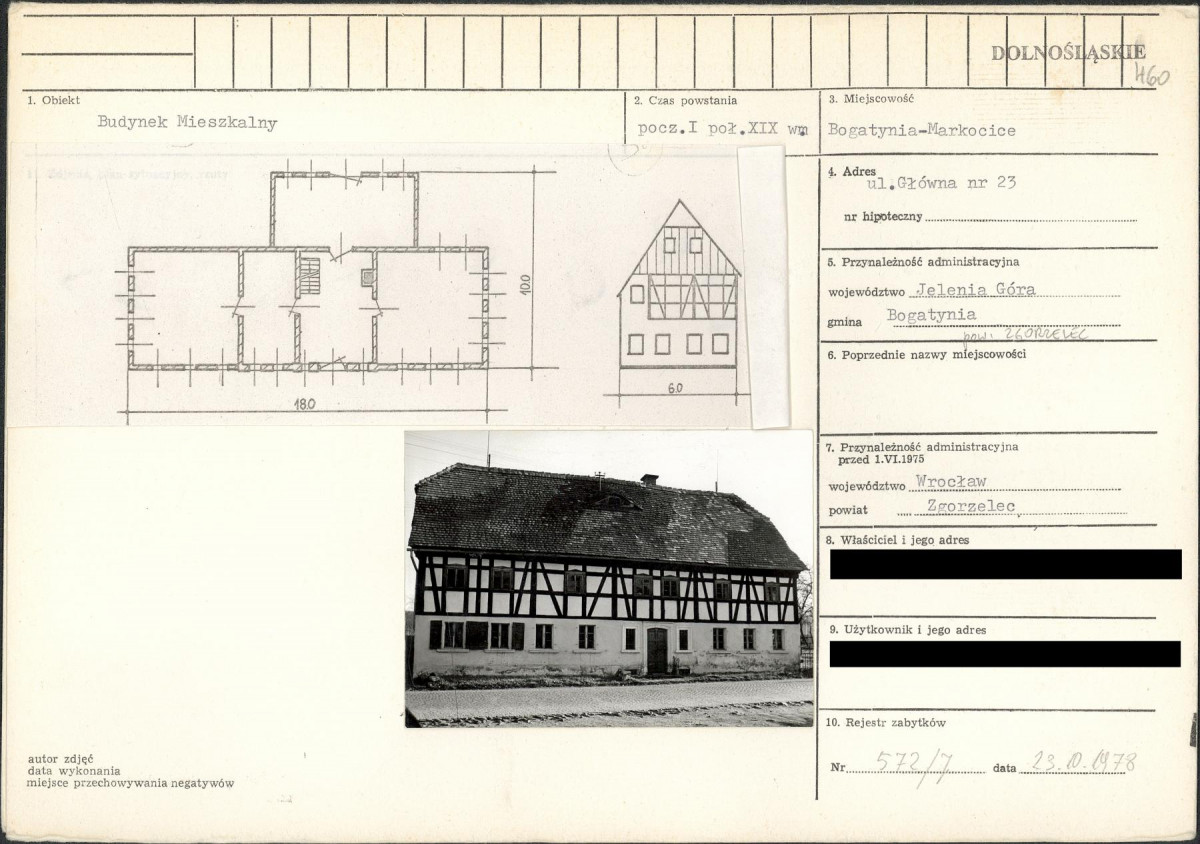 DOLNOŚLĄSKIE
460
1. Obiekt
Budynek Mieszkalny
2. Czas powstania
pocz.I poł.XIX w
3. Miejscowość
Bogatynia-Markocice
4. Adres
ul.Główna nr 23
nr hipoteczny
5. Przynależność administracyjna
województwo Jelenia Góra
gmina Bogatynia
pow. ZGORZELEC
6. Poprzednie nazwy miejscowości
7. Przynależność administracyjna
przed 1.VI.1975
województwo Wrocław
powiat Zgorzelec
8. Właściciel i jego adres
9. Użytkownik i jego adres
10. Rejestr zabytków
Nr 572/7 data 23.10.1978
10.0
18.0
6.0
autor zdjęć
data wykonania
miejsce przechowywania negatywów